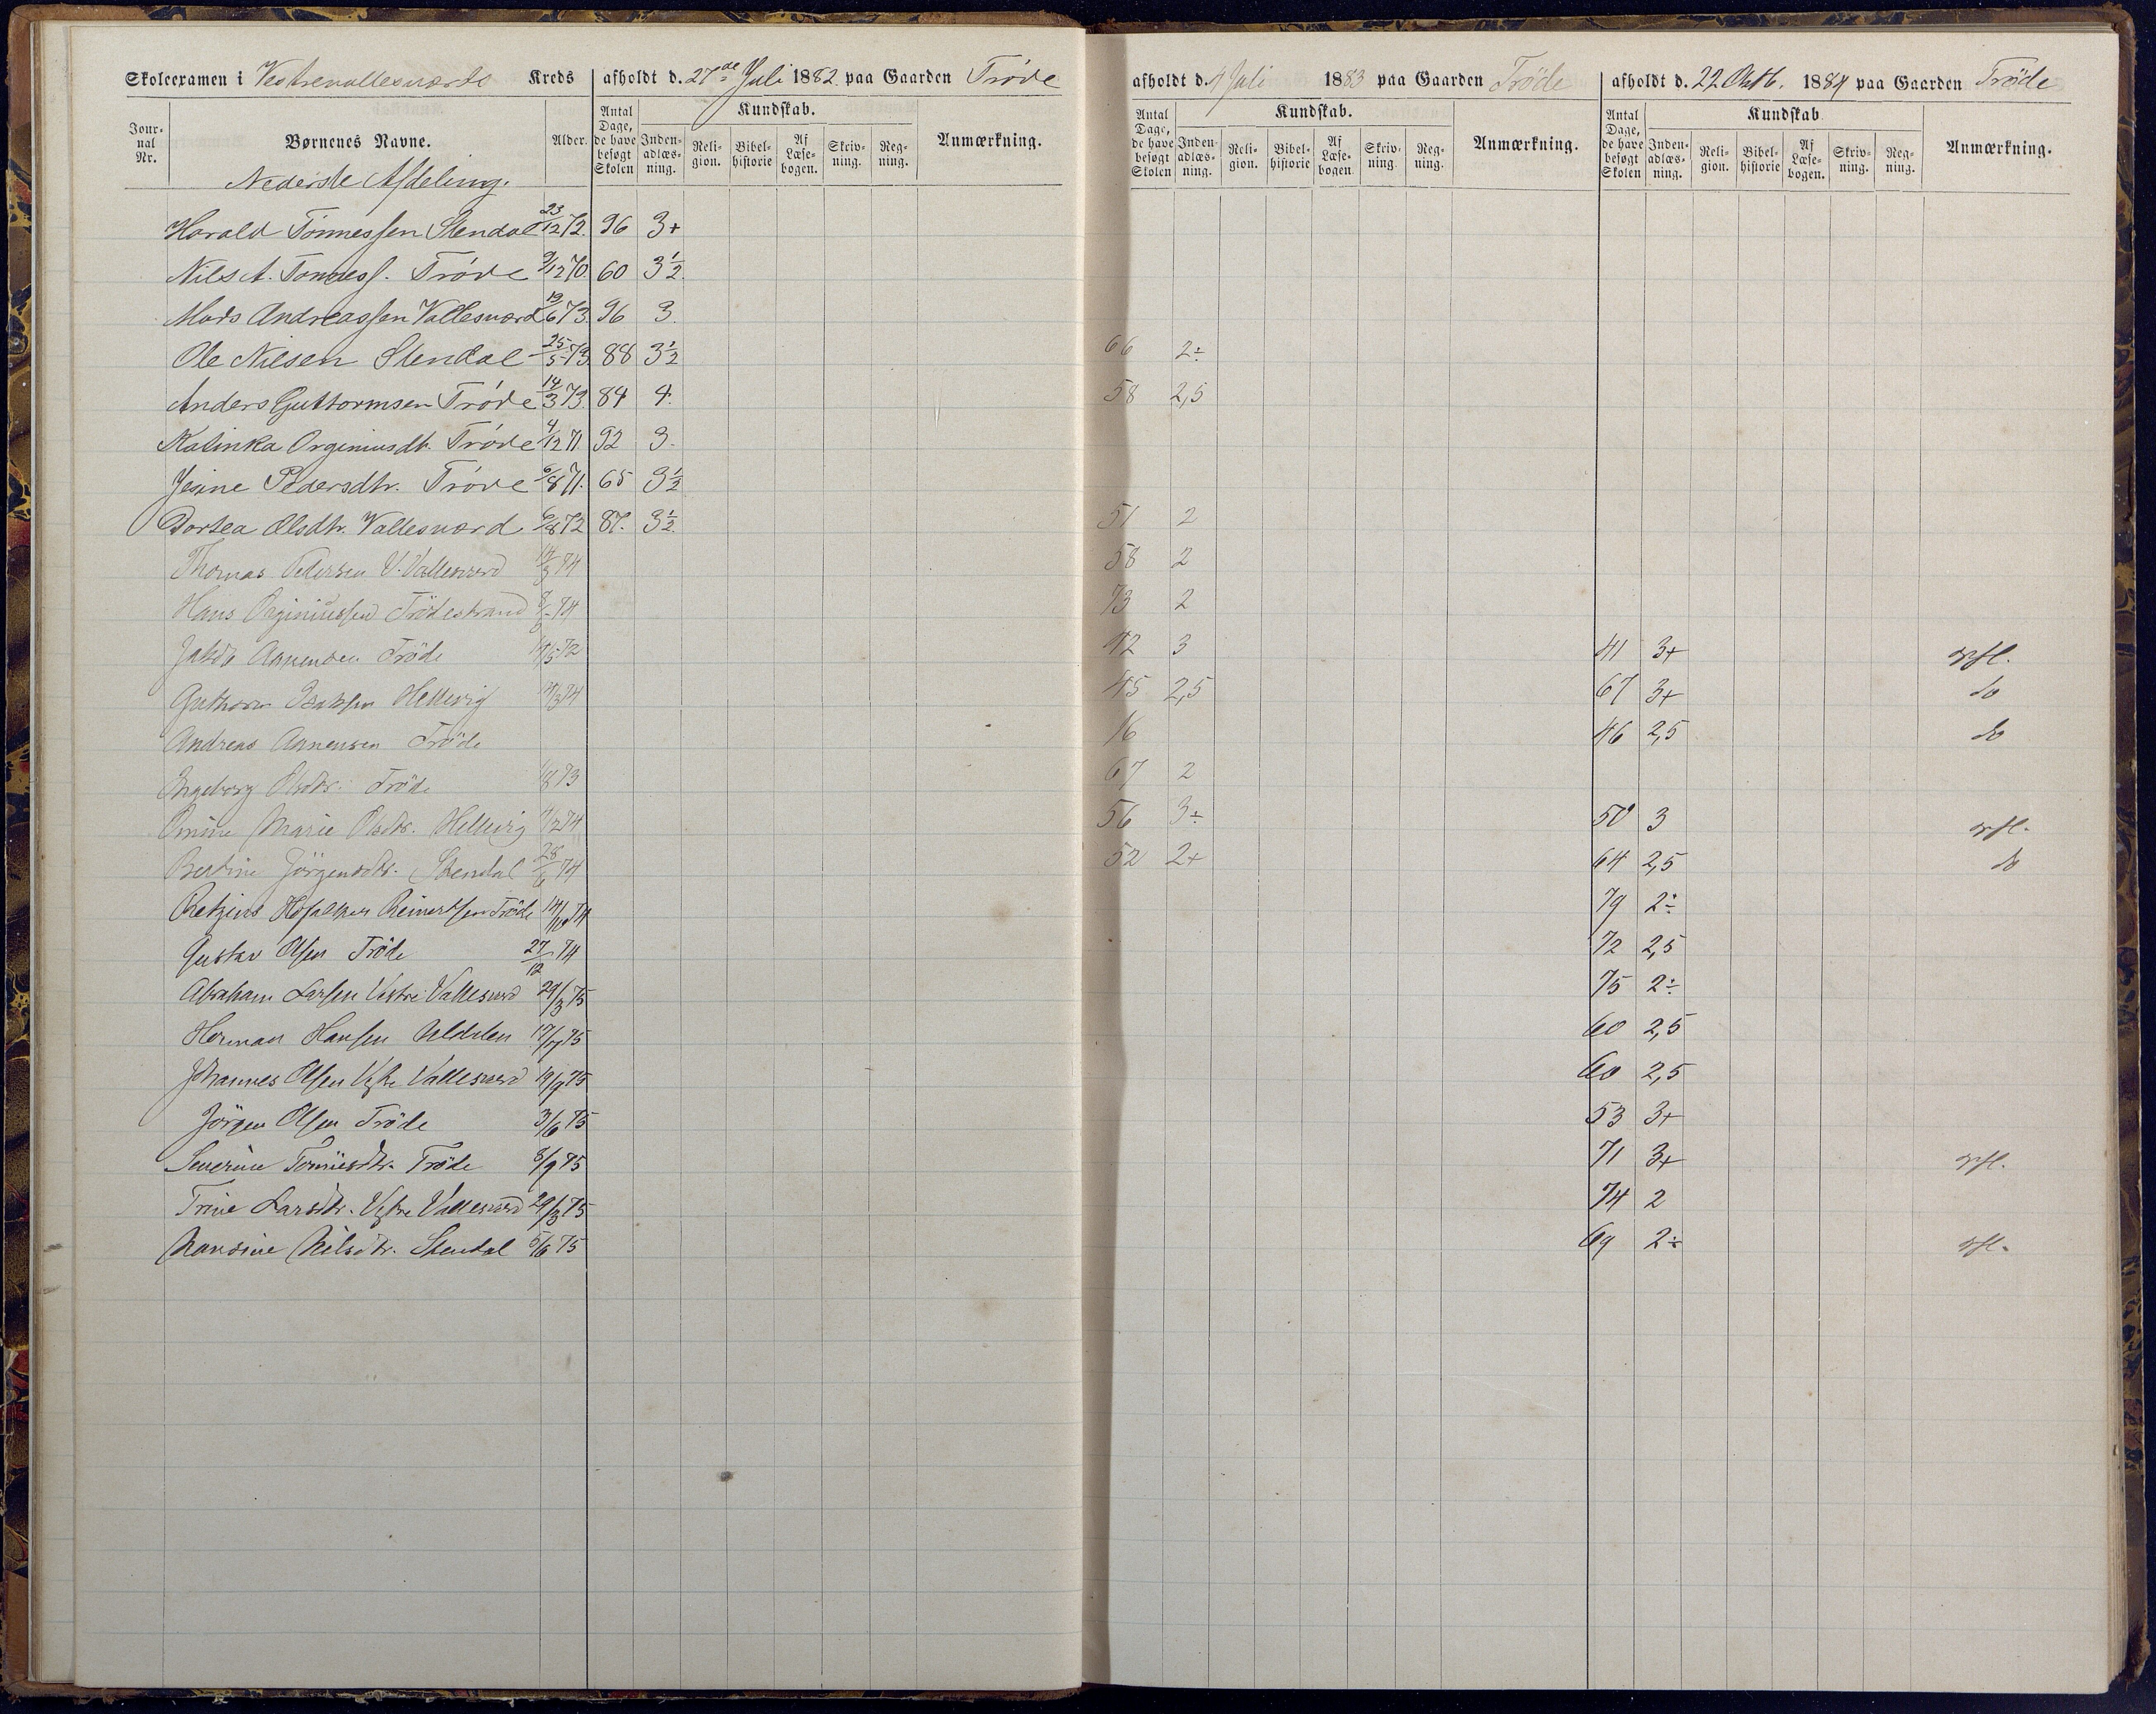 Skoleexamen i Vestrevallesværds Kreds afholdt d. 27de Juli 1882 paa Gaarden Trøde afholdt d. 4 Juli 1883 paa Gaarden Tröde afholdt d. 22 Oktb. 1884 paa Gaarden Tröde
Jour-nal Nr. Børnenes Navne. Alder. Antal Dage, de have besøgt Skolen Kundskab. Inden-adlæs-ning. Reli-gion. Bibel-historie Af Læse-bogen. Skriv-ning. Reg-ning. Anmærkning. Antal Dage, de have besøgt Skolen Kundskab. Inden-adlæs-ning. Reli-gion. Bibel-historie Af Læse-bogen Skriv-ning. Reg-ning. Anmærkning. Antal Dage, de have besøgt Skolen Kundskab Inden-adlæs-ning. Reli-gion. Bibel-historie Af Læse-bogen. Skriv-ning. Reg-ning. Anmærkning.
Nederste Afdeling.
Harald Tønnessen Stendal 23/12 72. 96 3+
Nils A. Tønness. Trøde 9/12 70. 60 3½.
Mads Andreassen Vallesværd 19/6 73. 96 3.
Ole Nilsen Stendal 25/5 73. 88 3½ 66 2÷
Anders Guttormsen Trøde 14/3 73. 84 4. 58 2,5
Kalinka Orginiusdt. Trøde 4/12 71. 92 3.
Jesine Pedersdtr. Trøde 6/8 71. 65 3½
Dortea Olsdtr. Vallesværd 6/8 72 87. 3½. 51 2
Thomas Pedersen V. Vallesværd 14/3 74 58 2
Hans Orginiussen Trödestrand 74 73 2
Jakob Aanensen Tröde 14/5 72 42 3 41 3+ opfl.
Guthorm Isaksen Hellevig 74 45 2,5 67 3+ do
Andreas Aanensen Tröde 16 46 2,5 do
Ingeborg Olsdtr. Tröde 73 67 2
Omine Marie Olsdtr. Hellevig 4/12 74 56 3÷ 50 3 opfl.
Bertine Jörgensdtr. Stendal 28/6 74 52 2+ 64 2,5 do
Reinertsen Tröde 14/10 74 79 2÷
Gustav Olsen Tröde 27/12 74 72 2,5
Abraham Larsen Vestre Vallesværd 29/3 75 75 2÷
Herman Hansen Uldalen 17/7 75 60 2,5
Johannes Olsen Vestre Vallesværd 19/9 75 60 2,5
Jörgen Olsen Tröde 3/6 75 53 3+
Severine Tönnesdtr. Tröde 8/9 75 71 3+ opfl.
Trine Larsdtr. Vestre Vallesværd 29/3 75 74 2
Nandine Nilsdtr. Stendal 5/6 75 69 2÷ opfl.